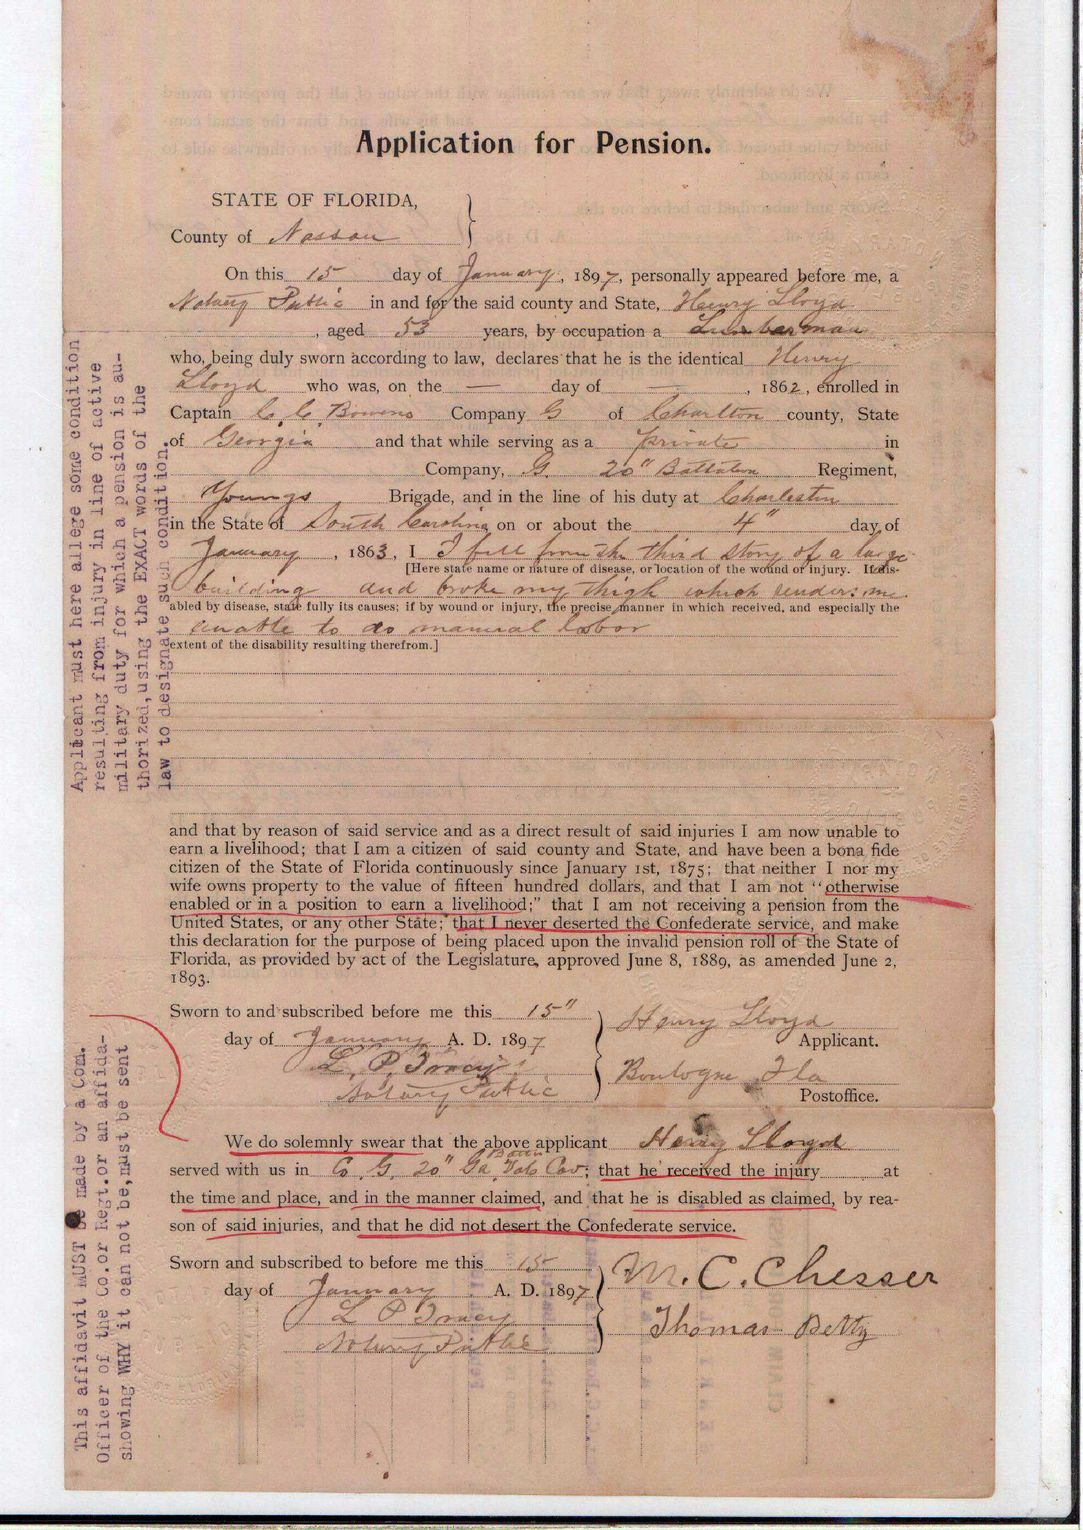 Application for Pension.
STATE OF FLORIDA,
County of Nassau
On this 15 day of January, 1897, personally appeared before me, a
Notary Public in and for the said county and State, Henry Lloyd
, aged 53 years, by occupation a Lumberman
who, being duly sworn according to law, declares that he is the identical Henry
Lloyd who was, on the — day of —, 1862, enrolled in
Captain C. C. Bowens Company G of Charlton county, State
of Georgia and that while serving as a private in
Company, G. 20" Battalion Regiment,
Youngs Brigade, and in the line of his duty at Charleston
in the State of South Carolina on or about the 4" day of
January, 1863, I I fell from the third story of a large
[Here state name or nature of disease, or location of the wound or injury. If dis-
building and broke my thigh which renders me
abled by disease, state fully its causes; if by wound or injury, the precise manner in which received, and especially the
unable to do manual labor
extent of the disability resulting therefrom.]
Applicant must here allege some condition
resulting from injury in line of active
military duty for which a pension is au-
thorized, using the EXACT words of the
law to designate such condition.
and that by reason of said service and as a direct result of said injuries I am now unable to
earn a livelihood; that I am a citizen of said county and State, and have been a bona fide
citizen of the State of Florida continuously since January 1st, 1875; that neither I nor my
wife owns property to the value of fifteen hundred dollars, and that I am not "otherwise
enabled or in a position to earn a livelihood;" that I am not receiving a pension from the
United States, or any other State; that I never deserted the Confederate service, and make
this declaration for the purpose of being placed upon the invalid pension roll of the State of
Florida, as provided by act of the Legislature, approved June 8, 1889, as amended June 2,
1893.
Sworn to and subscribed before me this 15"
day of January A. D. 1897
L. P. Tracy
Notary Public
Henry Lloyd
Applicant.
Boulogne Fla
Postoffice.
We do solemnly swear that the above applicant Henry Lloyd
served with us in Co. G. 20" Ga. Cav; that he received the injury at
the time and place, and in the manner claimed, and that he is disabled as claimed, by rea-
son of said injuries, and that he did not desert the Confederate service.
Sworn and subscribed to before me this 15
day of January A. D. 1897
L P Tracy
Notary Public
M. C. Chesser
Thomas Betty
This affidavit MUST be made by a Com.
Officer of the Co. or Regt. or an affida-
showing WHY it can not be, must be sent